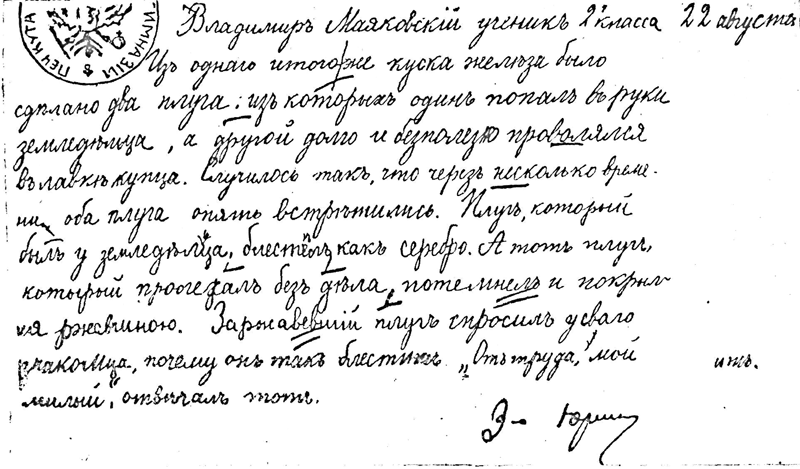 ГИМНАЗІИ ПЕЧ КУТА
Владимиръ Маяковскій ученикъ 2 класса 22 августа
Изъ однаго итогоже куска желѣза было
сдѣлано два плуга: изъ которыхъ одинъ попалъ въ руки
земледѣльца, а другой долго и безполезно провалялся
въ лавкѣ купца. Случилось такъ, что черезъ несколько време-
ни, оба плуга опять встрѣтились. Плугъ, который
былъ у земледѣльца, блестѣлъ какъ серебро. А тотъ плугъ,
который пролежалъ безъ дѣла, потемнелъ и покрыл-
ся ржавчиною. Заржавевшій плугъ спросилъ у сваго
знакомца, почему онъ такъ блеститъ „Отъ труда, мой итъ.
милый", отвѣчалъ тотъ.
3-